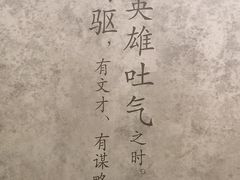 英雄吐气之时。
驱，有文才、有谋略